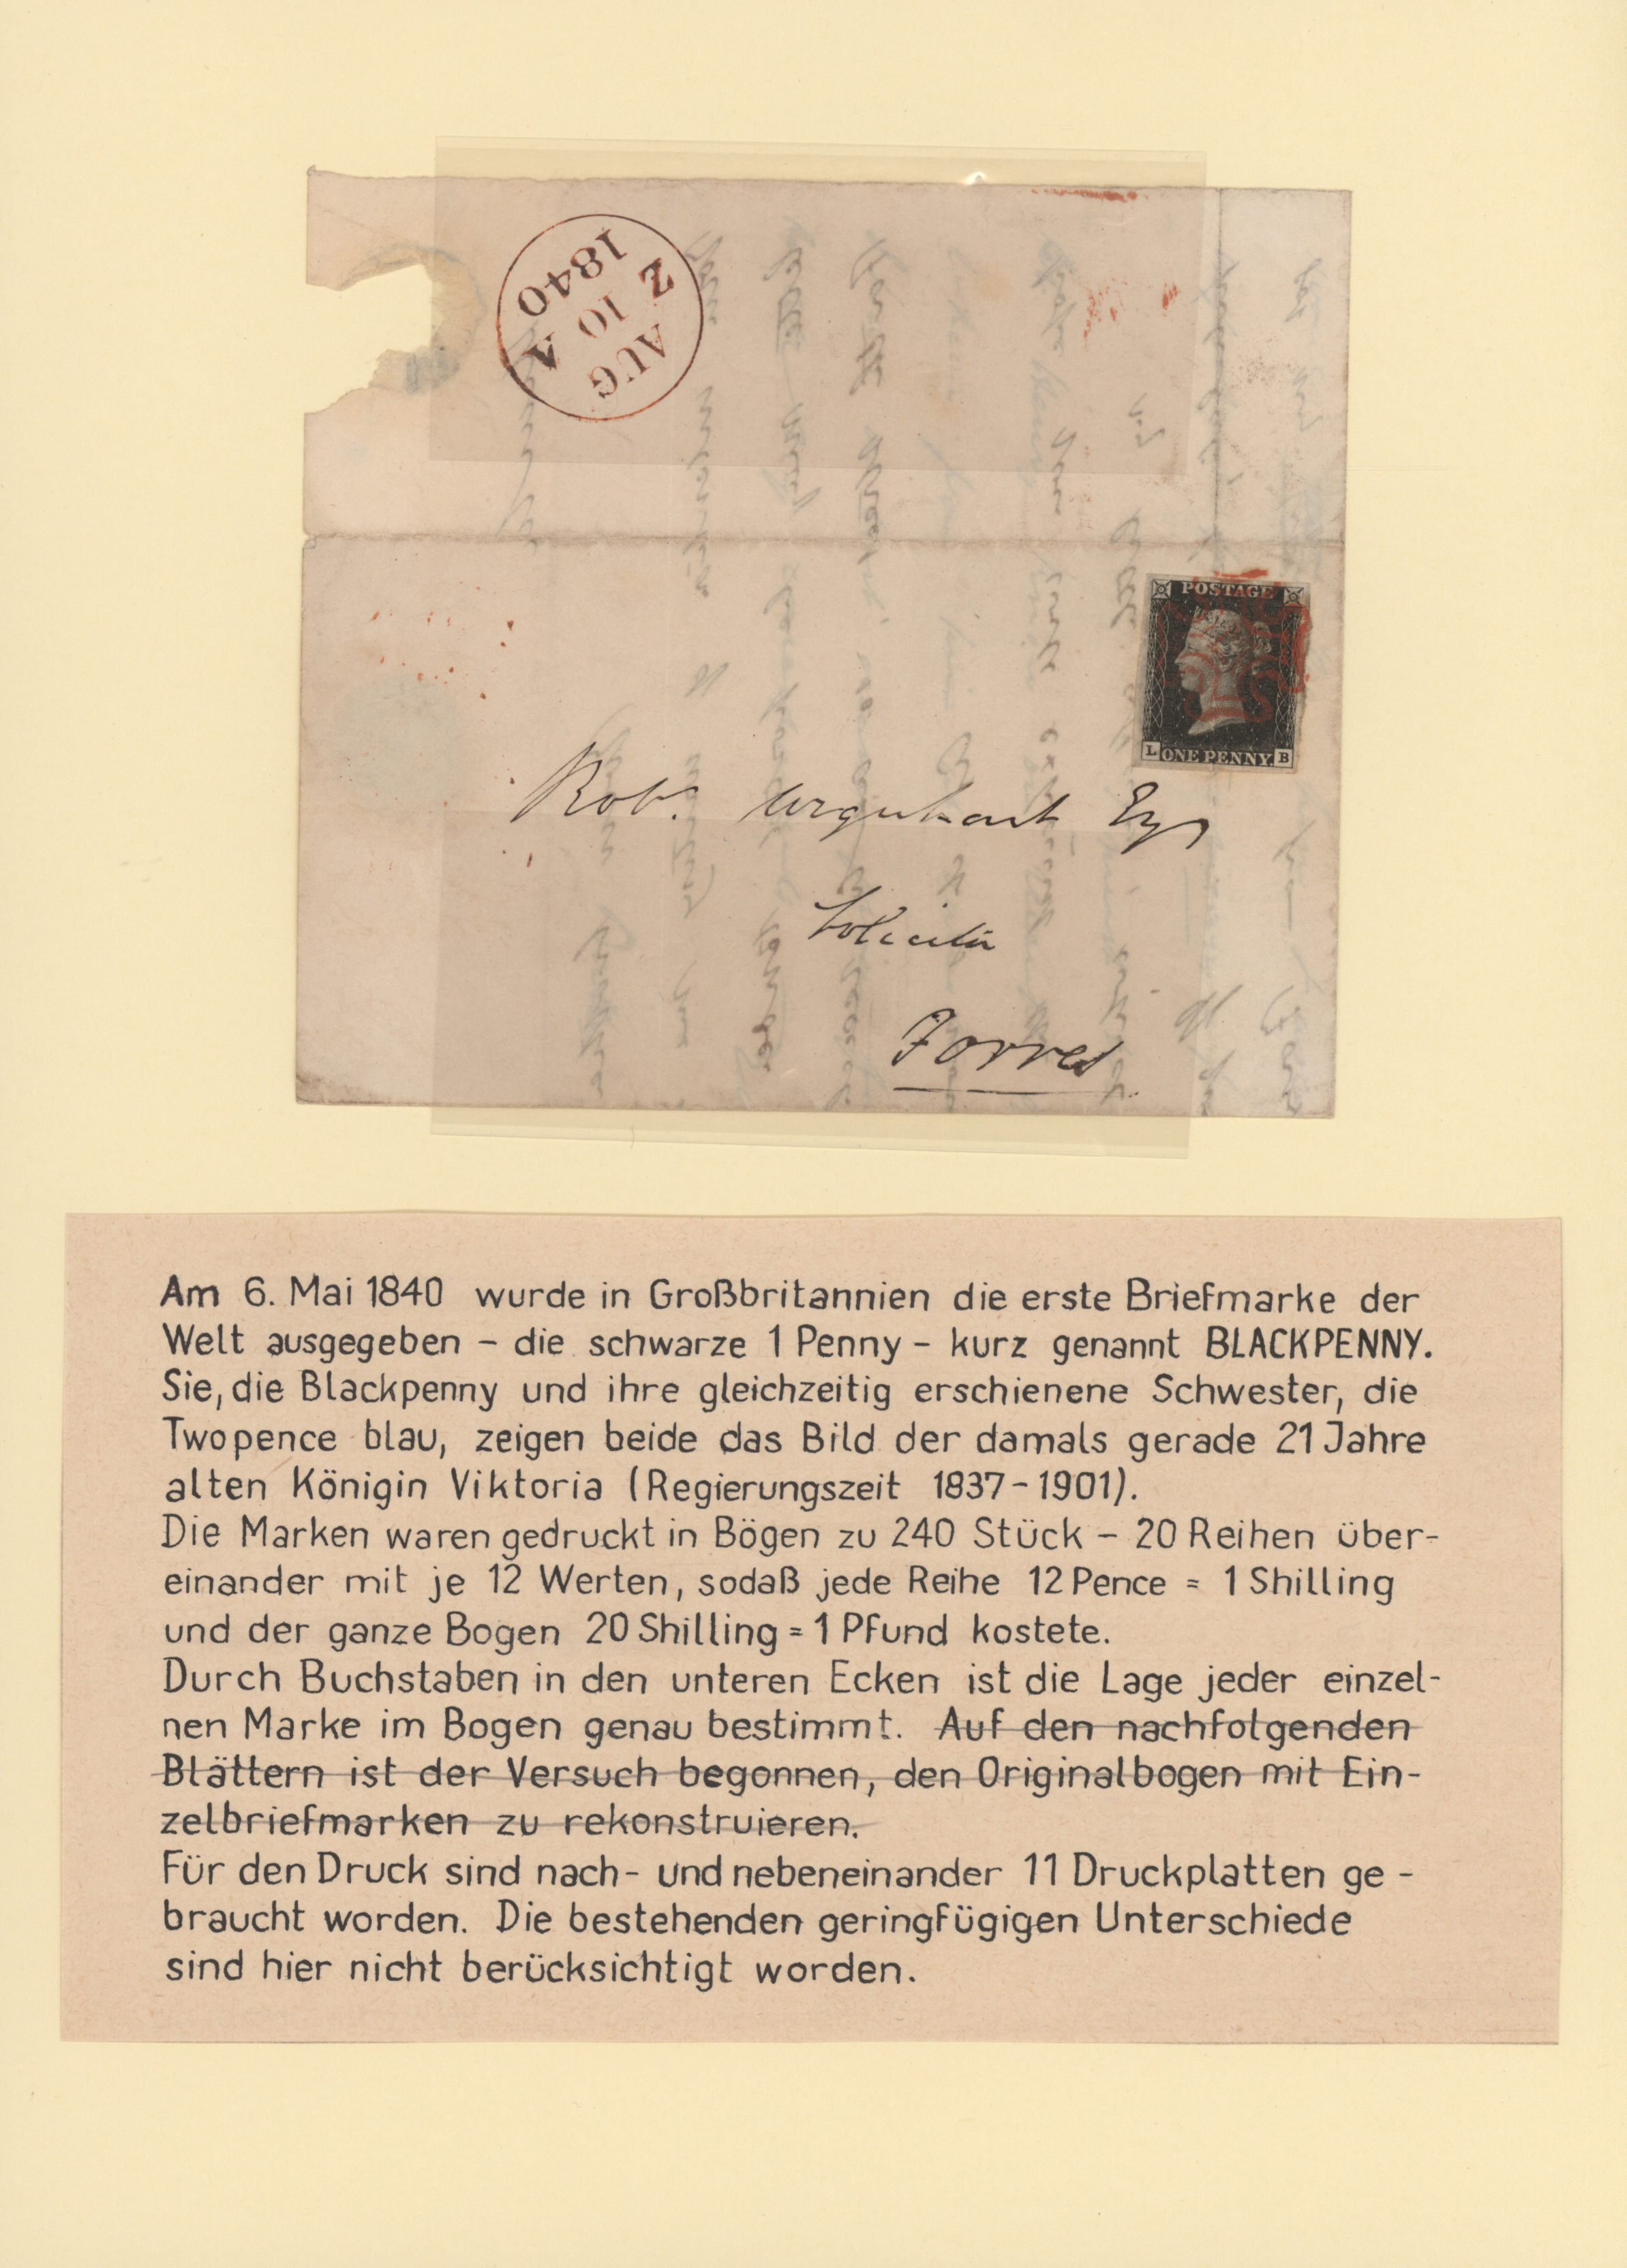 1840
Z
10
A
AUG
POSTAGE
L ONE PENNY. B
Robt. Urquhart Esqr
Solicitor
Forres
Am 6. Mai 1840 wurde in Großbritannien die erste Briefmarke der
Welt ausgegeben – die schwarze 1 Penny – kurz genannt BLACKPENNY.
Sie, die Blackpenny und ihre gleichzeitig erschienene Schwester, die
Twopence blau, zeigen beide das Bild der damals gerade 21 Jahre
alten Königin Viktoria (Regierungszeit 1837-1901).
Die Marken waren gedruckt in Bögen zu 240 Stück – 20 Reihen über-
einander mit je 12 Werten, sodaß jede Reihe 12 Pence = 1 Shilling
und der ganze Bogen 20 Shilling = 1 Pfund kostete.
Durch Buchstaben in den unteren Ecken ist die Lage jeder einzel-
nen Marke im Bogen genau bestimmt. Auf den nachfolgenden
Blättern ist der Versuch begonnen, den Originalbogen mit Ein-
zelbriefmarken zu rekonstruieren.
Für den Druck sind nach- und nebeneinander 11 Druckplatten ge-
braucht worden. Die bestehenden geringfügigen Unterschiede
sind hier nicht berücksichtigt worden.